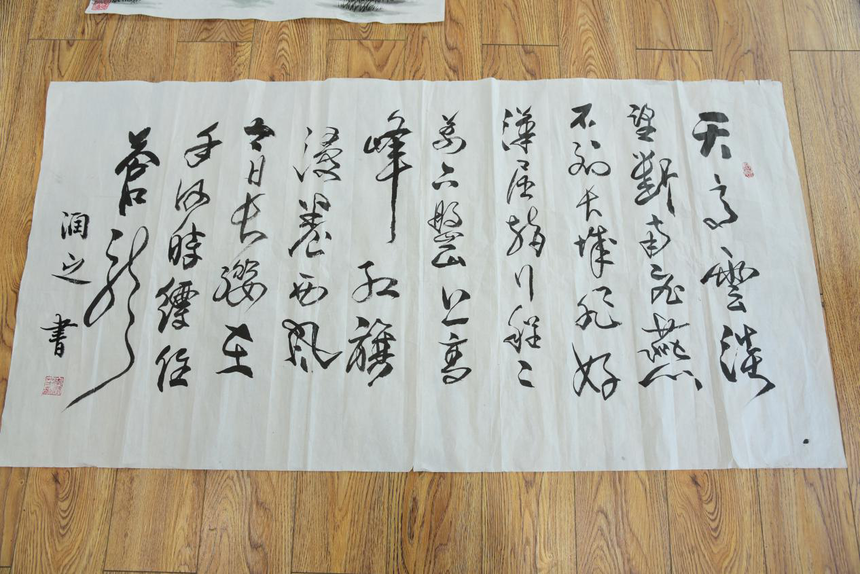 天高雲淡
望斷南飛燕
不到长城非好
漢屈指行程二
萬六盤山上高
峰红旗
漫卷西風
今日长纓在
手何時縛住
蒼龍
潤之
書